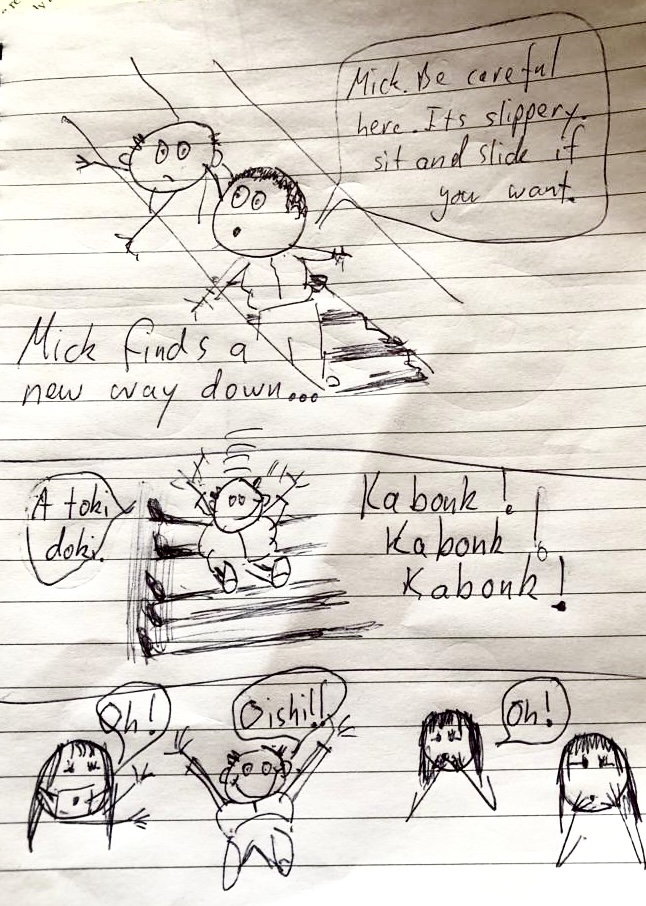 Mick. Be careful
here. Its slippery.
sit and slide if
you want.
Mick finds a
new way down...
A toki
doki.
Kabonk!
Kabonk!
Kabonk!
Oh!
Oishi!!
Oh!